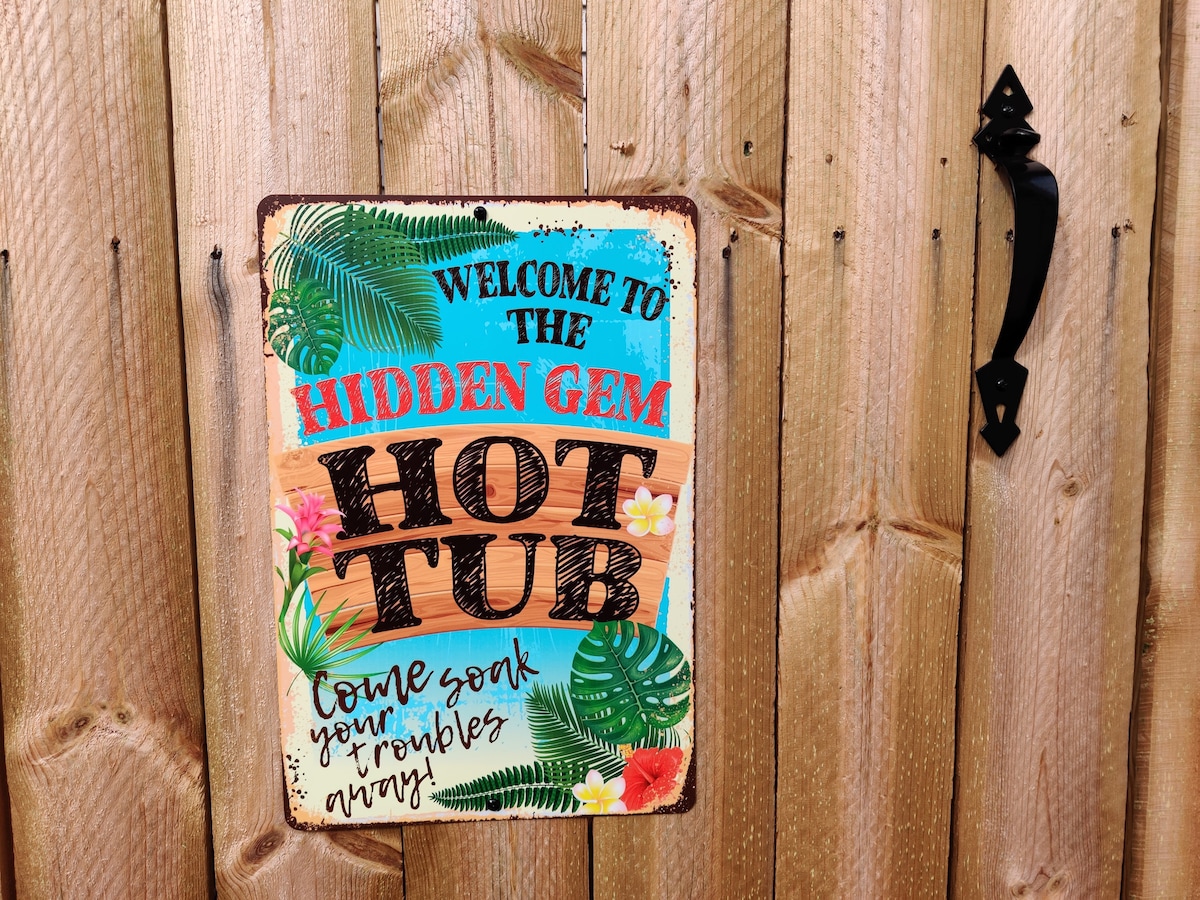 WELCOME TO
THE
HIDDEN GEM
HOT
TUB
Come soak
your
troubles
away!